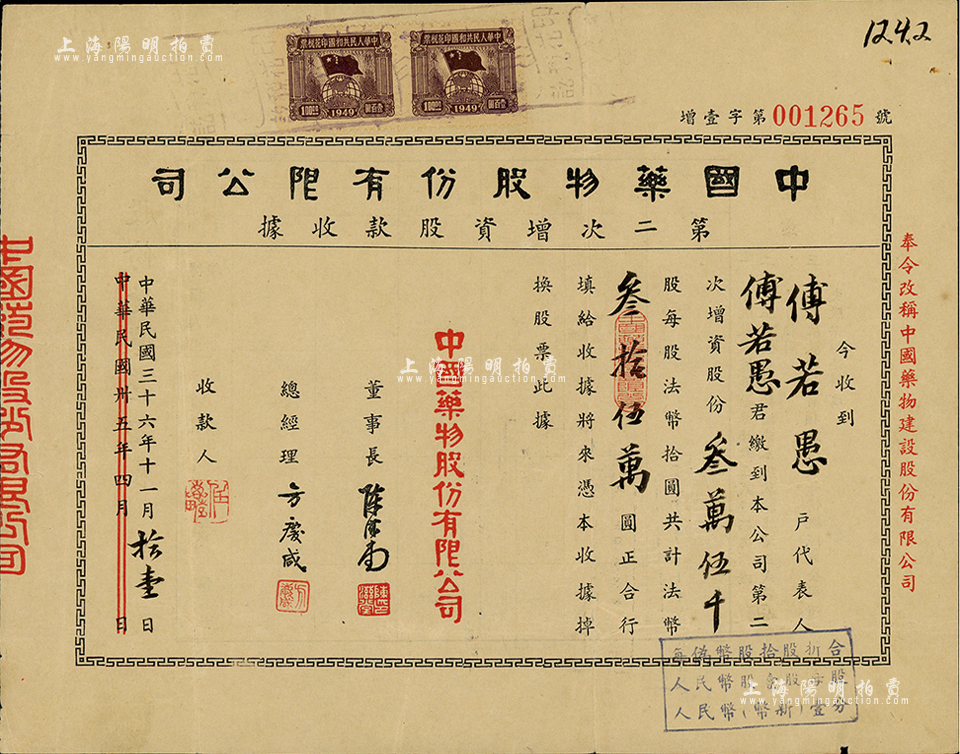 1242
增壹字第001265號
中華人民共和國印花稅票
壹百圓 1949 100
中華人民共和國印花稅票
壹百圓 1949 100
上海陽明拍賣
www.yangmingauction.com
上海陽明拍賣
www.yangmingauction.com
中國藥物股份有限公司
第二次增資股款收據
奉令改稱中國藥物建設股份有限公司
今收到
傅若愚 戶代表人
傅若愚君繳到本公司第二
次增資股份叁萬伍千
股每股法幣拾圓共計法幣
叁拾伍萬圓正合行
填給收據將來憑本收據掉
換股票此據
中國藥物股份有限公司
董事長
總經理 方慶咸
收款人
中華民國三十六年十一月拾壹日
中華民國卅五年四月 日
中國藥物股份有限公司
上海陽明拍賣
www.yangmingauction.com
每偽幣股拾股折合
人民幣股壹股每股
人民幣(幣新)壹分
上海陽明拍賣
www.yangmingauction.com